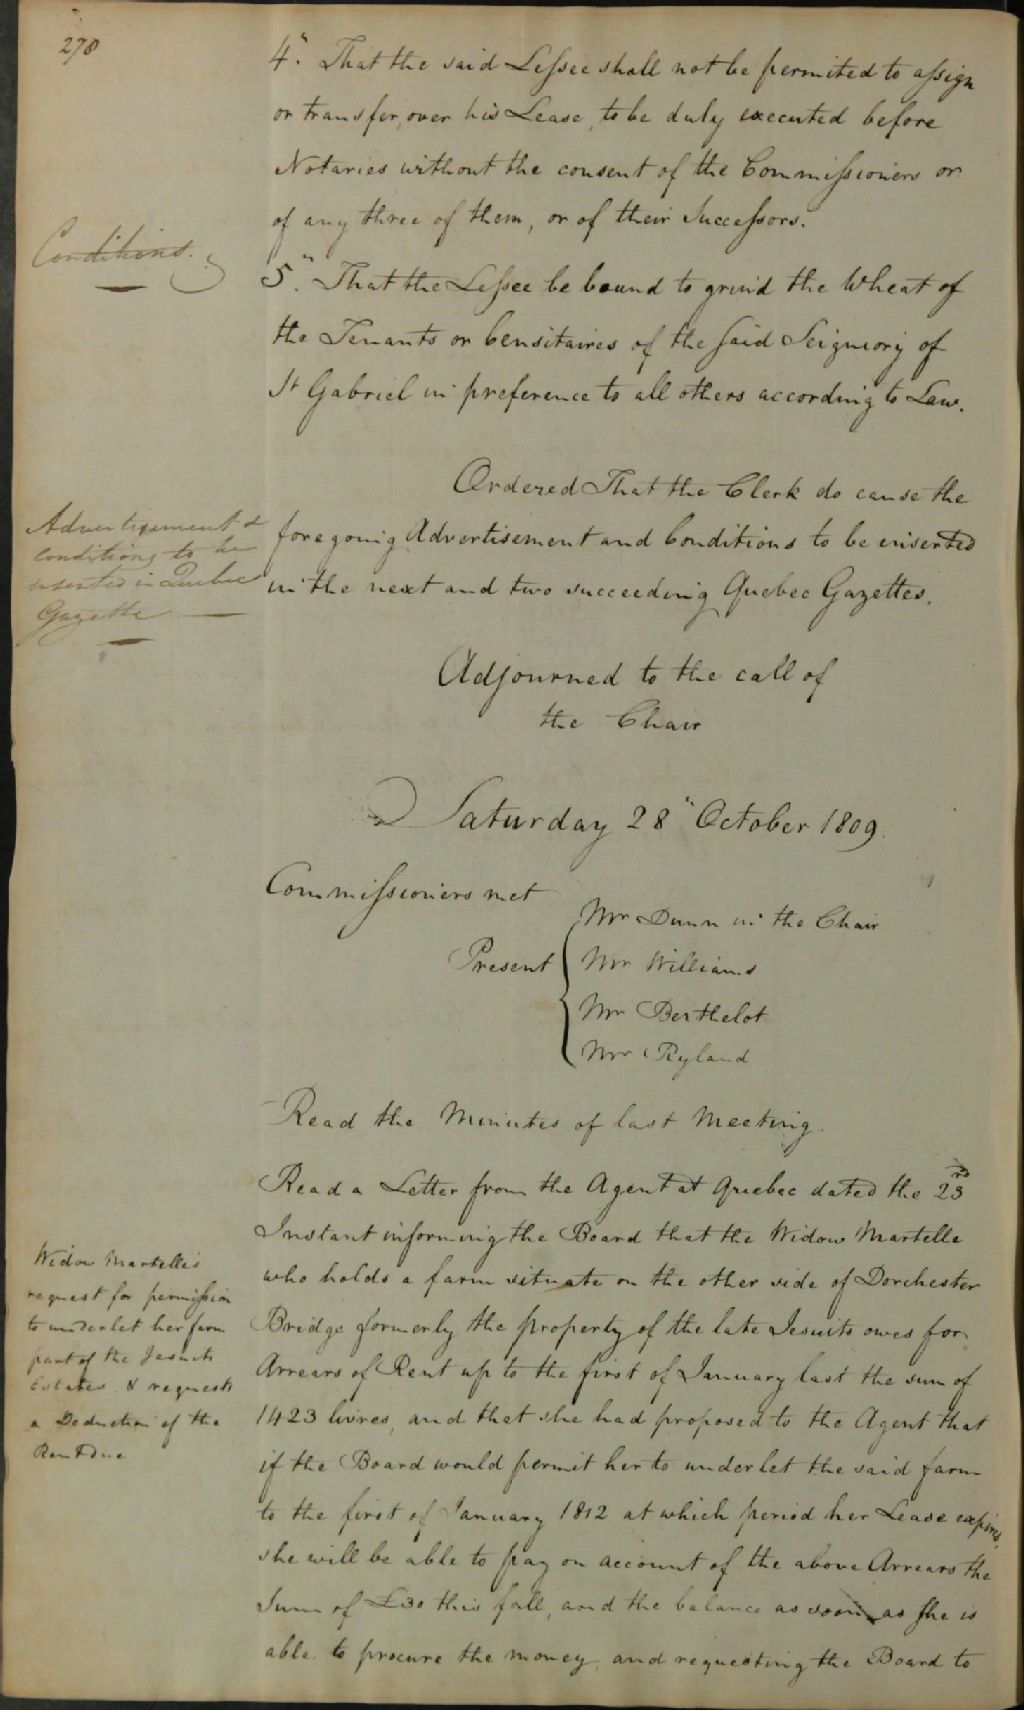 278
4". That the said Lessee shall not be permited to assign
or transfer, over his Lease, to be duly executed before
Notaries without the consent of the Commissioners or
of any three of them, or of their Successors.
Conditions.
5". That the Lessee be bound to grind the Wheat of
the Tenants or Censitaires of the said Seigniory of
St Gabriel in preference to all others according to Law.
Ordered That the Clerk do cause the
foregoing Advertisement and Conditions to be inserted
in the next and two succeeding Quebec Gazettes.
Advertisement &
conditions to be
inserted in Quebec
Gazette
Adjourned to the call of
the Chair
Saturday 28" October 1809.
Commissioners met
Present
Mr Dunn in the Chair
Mr Williams
Mr Berthelot
Mr Ryland
Read the Minutes of last Meeting.
Read a Letter from the Agent at Quebec dated the 23rd
Instant informing the Board that the Widow Martelle
who holds a farm situate on the other side of Dorchester
Bridge formerly the property of the late Jesuits owes for
Arrears of Rent up to the first of January last the sum of
1423 livres, and that she had proposed to the Agent that
if the Board would permit her to underlet the said farm
to the first of January 1812 at which period her Lease expires,
she will be able to pay on account of the above Arrears the
Sum of £30 this fall, and the balance as soon as she is
able to procure the money, and requesting the Board to
Widow Martelle's
request for permission
to underlet her farm
part of the Jesuits
Estates & requests
a Deduction of the
Rent due